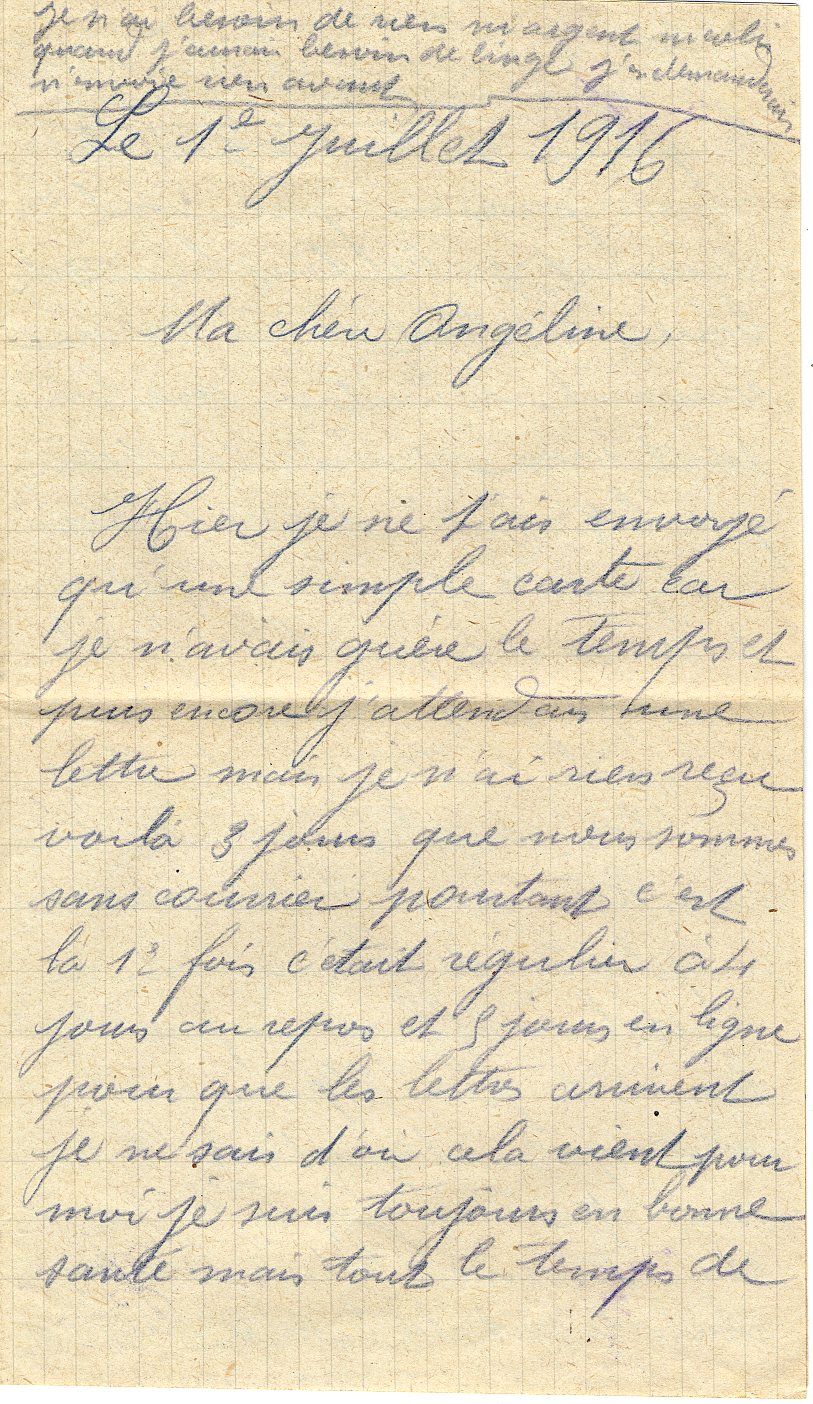 je n'ai besoin de rien ni argent ni colis
quand j'aurai besoin de linge j'en demanderais
n'envoie rien avant
Le 1e Juillet 1916
Ma chère Angéline,
Hier je ne t'ais envoyé
qu'une simple carte car
je n'avais guère le temps et
puis encore j'attendais une
lettre mais je n'ai rien reçu
voilà 3 jours que nous sommes
sans courrier pourtant c'est
la 1e fois c'était régulier à 4
jours au repos et 5 jours en ligne
pour que les lettres arrivent
je ne sais d'où cela vient pour
moi je suis toujours en bonne
santé mais tout le temps de